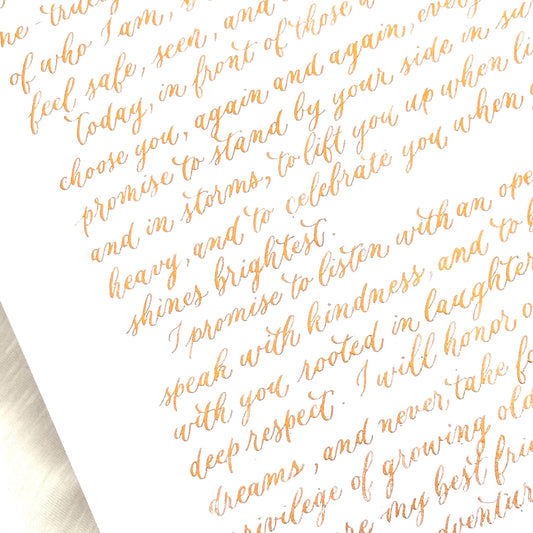 of who I am,
feel safe, seen, and
today, in front of those
choose you, again and again, every
promise to stand by your side in
and in storms, to lift you up when
heavy, and to celebrate you when
shines brightest.
I promise to listen with an
speak with kindness, and to
with you rooted in laughter
deep respect. I will honor
dreams, and never take
privilege of growing old
my best